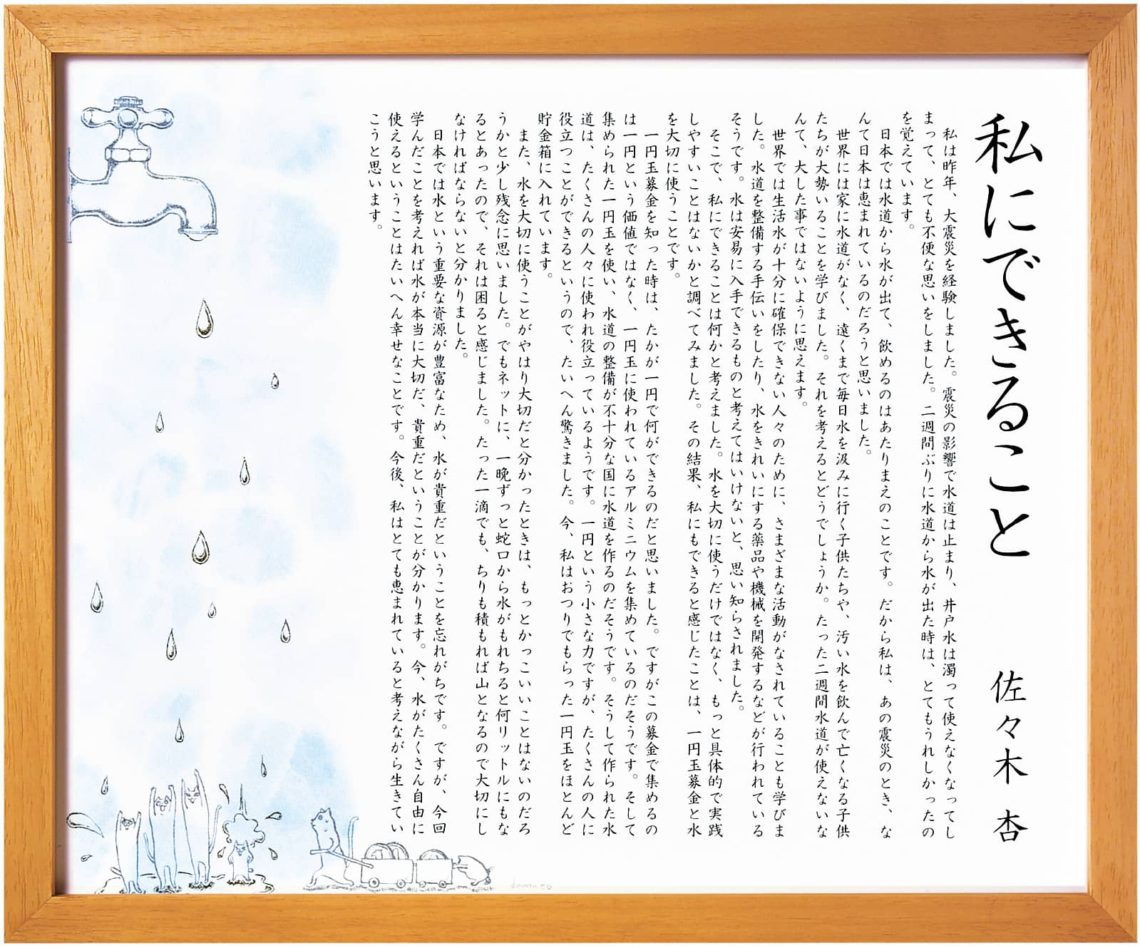 私にできること
佐々木 杏
私は昨年、大震災を経験しました。震災の影響で水道は止まり、井戸水は濁って使えなくなってし
まって、とても不便な思いをしました。二週間ぶりに水道から水が出た時は、とてもうれしかったの
を覚えています。
日本では水道から水が出て、飲めるのはあたりまえのことです。だから私は、あの震災のとき、な
んて日本は恵まれているのだろうと思いました。
世界には家に水道がなく、遠くまで毎日水を汲みに行く子供たちや、汚い水を飲んで亡くなる子供
たちが大勢いることを学びました。それを考えるとどうでしょうか。たった二週間水道が使えないな
んて、大した事ではないように思えます。
世界では生活水が十分に確保できない人々のために、さまざまな活動がなされていることも学びま
した。水道を整備する手伝いをしたり、水をきれいにする薬品や機械を開発するなどが行われている
そうです。水は安易に入手できるものと考えてはいけないと、思い知らされました。
そこで、私にできることは何かと考えました。水を大切に使うだけではなく、もっと具体的で実践
しやすいことはないかと調べてみました。その結果、私にもできると感じたことは、一円玉募金と水
を大切に使うことです。
一円玉募金を知った時は、たかが一円で何ができるのだと思いました。ですがこの募金で集めるの
は一円という価値ではなく、一円玉に使われているアルミニウムを集めているのだそうです。そして
集められた一円玉を使い、水道の整備が不十分な国に水道を作るのだそうです。そうして作られた水
道は、たくさんの人々に使われ役立っているようです。一円という小さな力ですが、たくさんの人に
役立つことができるというので、たいへん驚きました。今、私はおつりでもらった一円玉をほとんど
貯金箱に入れています。
また、水を大切に使うことがやはり大切だと分かったときは、もっとかっこいいことはないのだろ
うかと少し残念に思いました。でもネットに、一晩ずっと蛇口から水がもれちると何リットルにもな
るとあったので、それは困ると感じました。たった一滴でも、ちりも積もれば山となるので大切にし
なければならないと分かりました。
日本では水という重要な資源が豊富なため、水が貴重だということを忘れがちです。ですが、今回
学んだことを考えれば水が本当に大切だ、貴重だということが分かります。今、水がたくさん自由に
使えるということはたいへん幸せなことです。今後、私はとても恵まれていると考えながら生きてい
こうと思います。